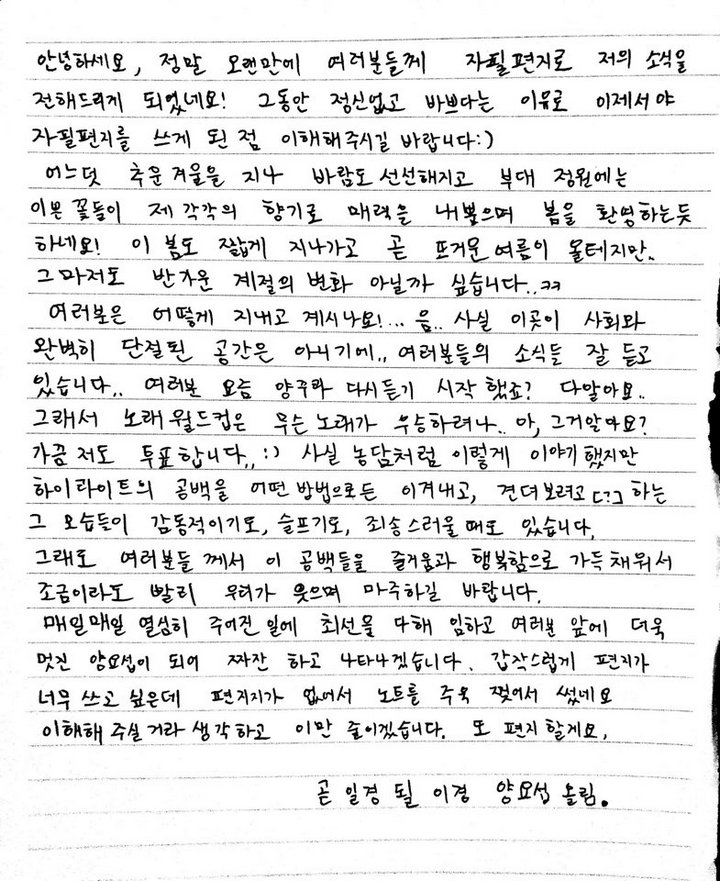 안녕하세요, 정말 오랜만에 여러분들께 자필편지로 저의 소식을
전해드리게 되었네요! 그동안 정신없고 바쁘다는 이유로 이제서야
자필편지를 쓰게 된 점 이해해주시길 바랍니다:)
어느덧 추운 겨울을 지나 바람도 선선해지고 부대 정원에는
이쁜 꽃들이 제 각각의 향기로 매력을 내뿜으며 봄을 환영하는듯
하네요! 이 봄도 짧게 지나가고 곧 뜨거운 여름이 올테지만..
그마저도 반가운 계절의 변화 아닐까 싶습니다..ㅋㅋ
여러분은 어떻게 지내고 계시나요!... 음.. 사실 이곳이 사회와
완벽히 단절된 공간은 아니기에.. 여러분들의 소식들 잘 듣고
있습니다.. 여러분 요즘 양꾸라 다시듣기 시작 했죠? 다알아요..
그래서 노래 월드컵은 무슨 노래가 우승하려나.. 아, 그거알아요?
가끔 저도 투표합니다..:) 사실 농담처럼 이렇게 이야기 했지만
하이라이트의 공백을 어떤 방법으로든 이겨내고, 견뎌보려고[?] 하는
그 모습들이 감동적이기도, 슬프기도, 죄송스러울 때도 있습니다.
그래도 여러분들 께서 이 공백들을 즐거움과 행복함으로 가득 채워서
조금이라도 빨리 우리가 웃으며 마주하길 바랍니다.
매일매일 열심히 주어진 일에 최선을 다해 임하고 여러분 앞에 더욱
멋진 양요섭이 되어 짜잔 하고 나타나겠습니다. 갑작스럽게 편지가
너무 쓰고 싶은데 편지지가 없어서 노트를 주욱 찢어서 썼네요
이해해 주실거라 생각하고 이만 줄이겠습니다. 또 편지 할게요.
곧 일경 될 이경 양요섭 올림.